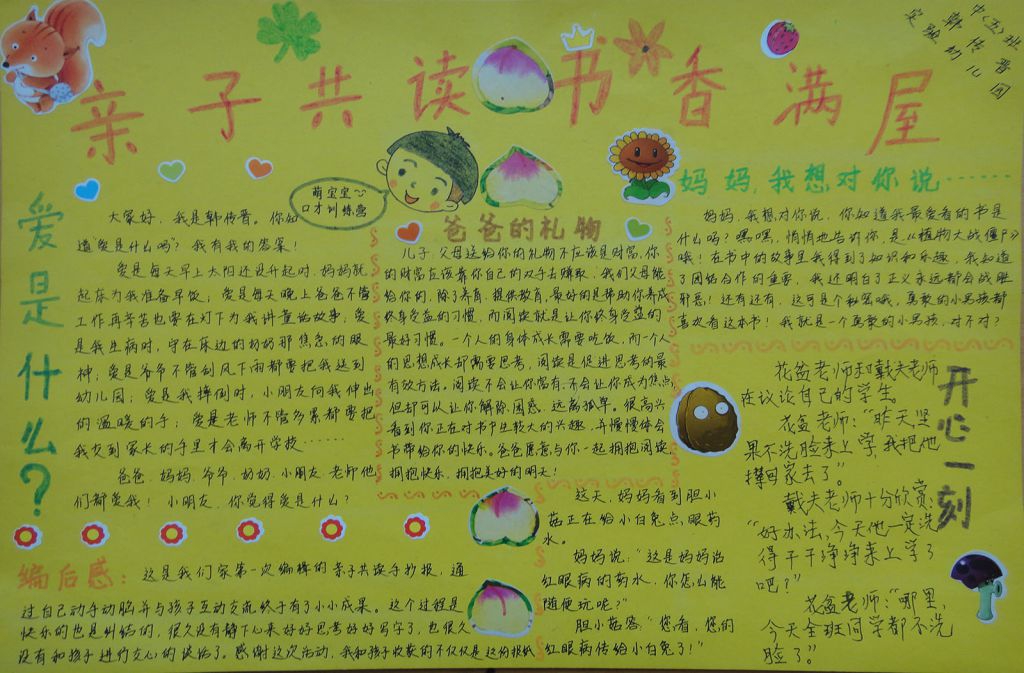 亲子共读书香满屋
中(五)班
韩传晋
实验幼儿园
爱是什么?
萌宝宝
口才训练营
大家好,我是韩传晋。你知
道爱是什么吗?我有我的答案!
爱是每天早上太阳还没升起时,妈妈就
起床为我准备早饭;爱是每天晚上爸爸不管
工作再辛苦也要在灯下为我讲童话故事;爱
是我生病时,守在床边的奶奶那焦急的眼
神;爱是爷爷不管刮风下雨都要把我送到
幼儿园;爱是我摔倒时,小朋友向我伸出
的温暖的手;爱是老师不管多累都要把
我交到家长的手里才会离开学校……
爸爸、妈妈、爷爷、奶奶、小朋友、老师他
们都爱我!小朋友,你觉得爱是什么?
爸爸的礼物
儿子,父母送给你的礼物不应该是财富,你
的财富应该靠你自己的双手去赚取,我们父母能
给你的,除了养育、提供教育,最好的是帮助你养成
终身受益的习惯,而阅读就是让你终身受益的
最好习惯。一个人的身体成长需要吃饭,而一个人
的思想成长却需要思考,阅读是促进思考的最
有效方法。阅读不会让你富有,不会让你成为焦点,
但却可以让你解除困惑、远离孤单。很高兴
看到你正在对书产生较大的兴趣,并慢慢体会
书带给你的快乐。爸爸愿意与你一起拥抱阅读,
拥抱快乐,拥抱美好的明天!
妈妈,我想对你说……
妈妈,我想对你说,你知道我最爱看的书是
什么吗?嘿嘿,悄悄地告诉你,是《植物大战僵尸》
哦!在书中的故事里我得到了知识和乐趣,我知道
了团结合作的重要,我还明白了正义永远都会战胜
邪恶!还有还有,这可是个秘密哦,勇敢的小男孩都
喜欢看这本书!我就是一个勇敢的小男孩,对不对?
开心一刻
花盆老师和戴夫老师
在议论自己的学生。
花盆老师:“昨天坚
果不洗脸来上学,我把他
撵回家去了。”
戴夫老师十分欣赏:
“好办法,今天他一定洗
得干干净净来上学了
吧?”
花盆老师:“哪里,
今天全班同学都不洗
脸了。”
这天,妈妈看到胆小
菇正在给小白兔点眼药
水。
妈妈说:“这是妈妈治
红眼病的药水,你怎么能
随便玩呢?”
胆小菇答:“您看,您的
红眼病传给小白兔了!”
编后感:这是我们家第一次编辑的亲子共读手抄报,通
过自己动手动脑并与孩子互动交流终于有了小小成果。这个过程是
快乐的也是纠结的,很久没有静下心来好好思考好好写字了,也很久
没有和孩子进行交心的谈话了。感谢这次活动,我和孩子收获的不仅仅是这份报纸